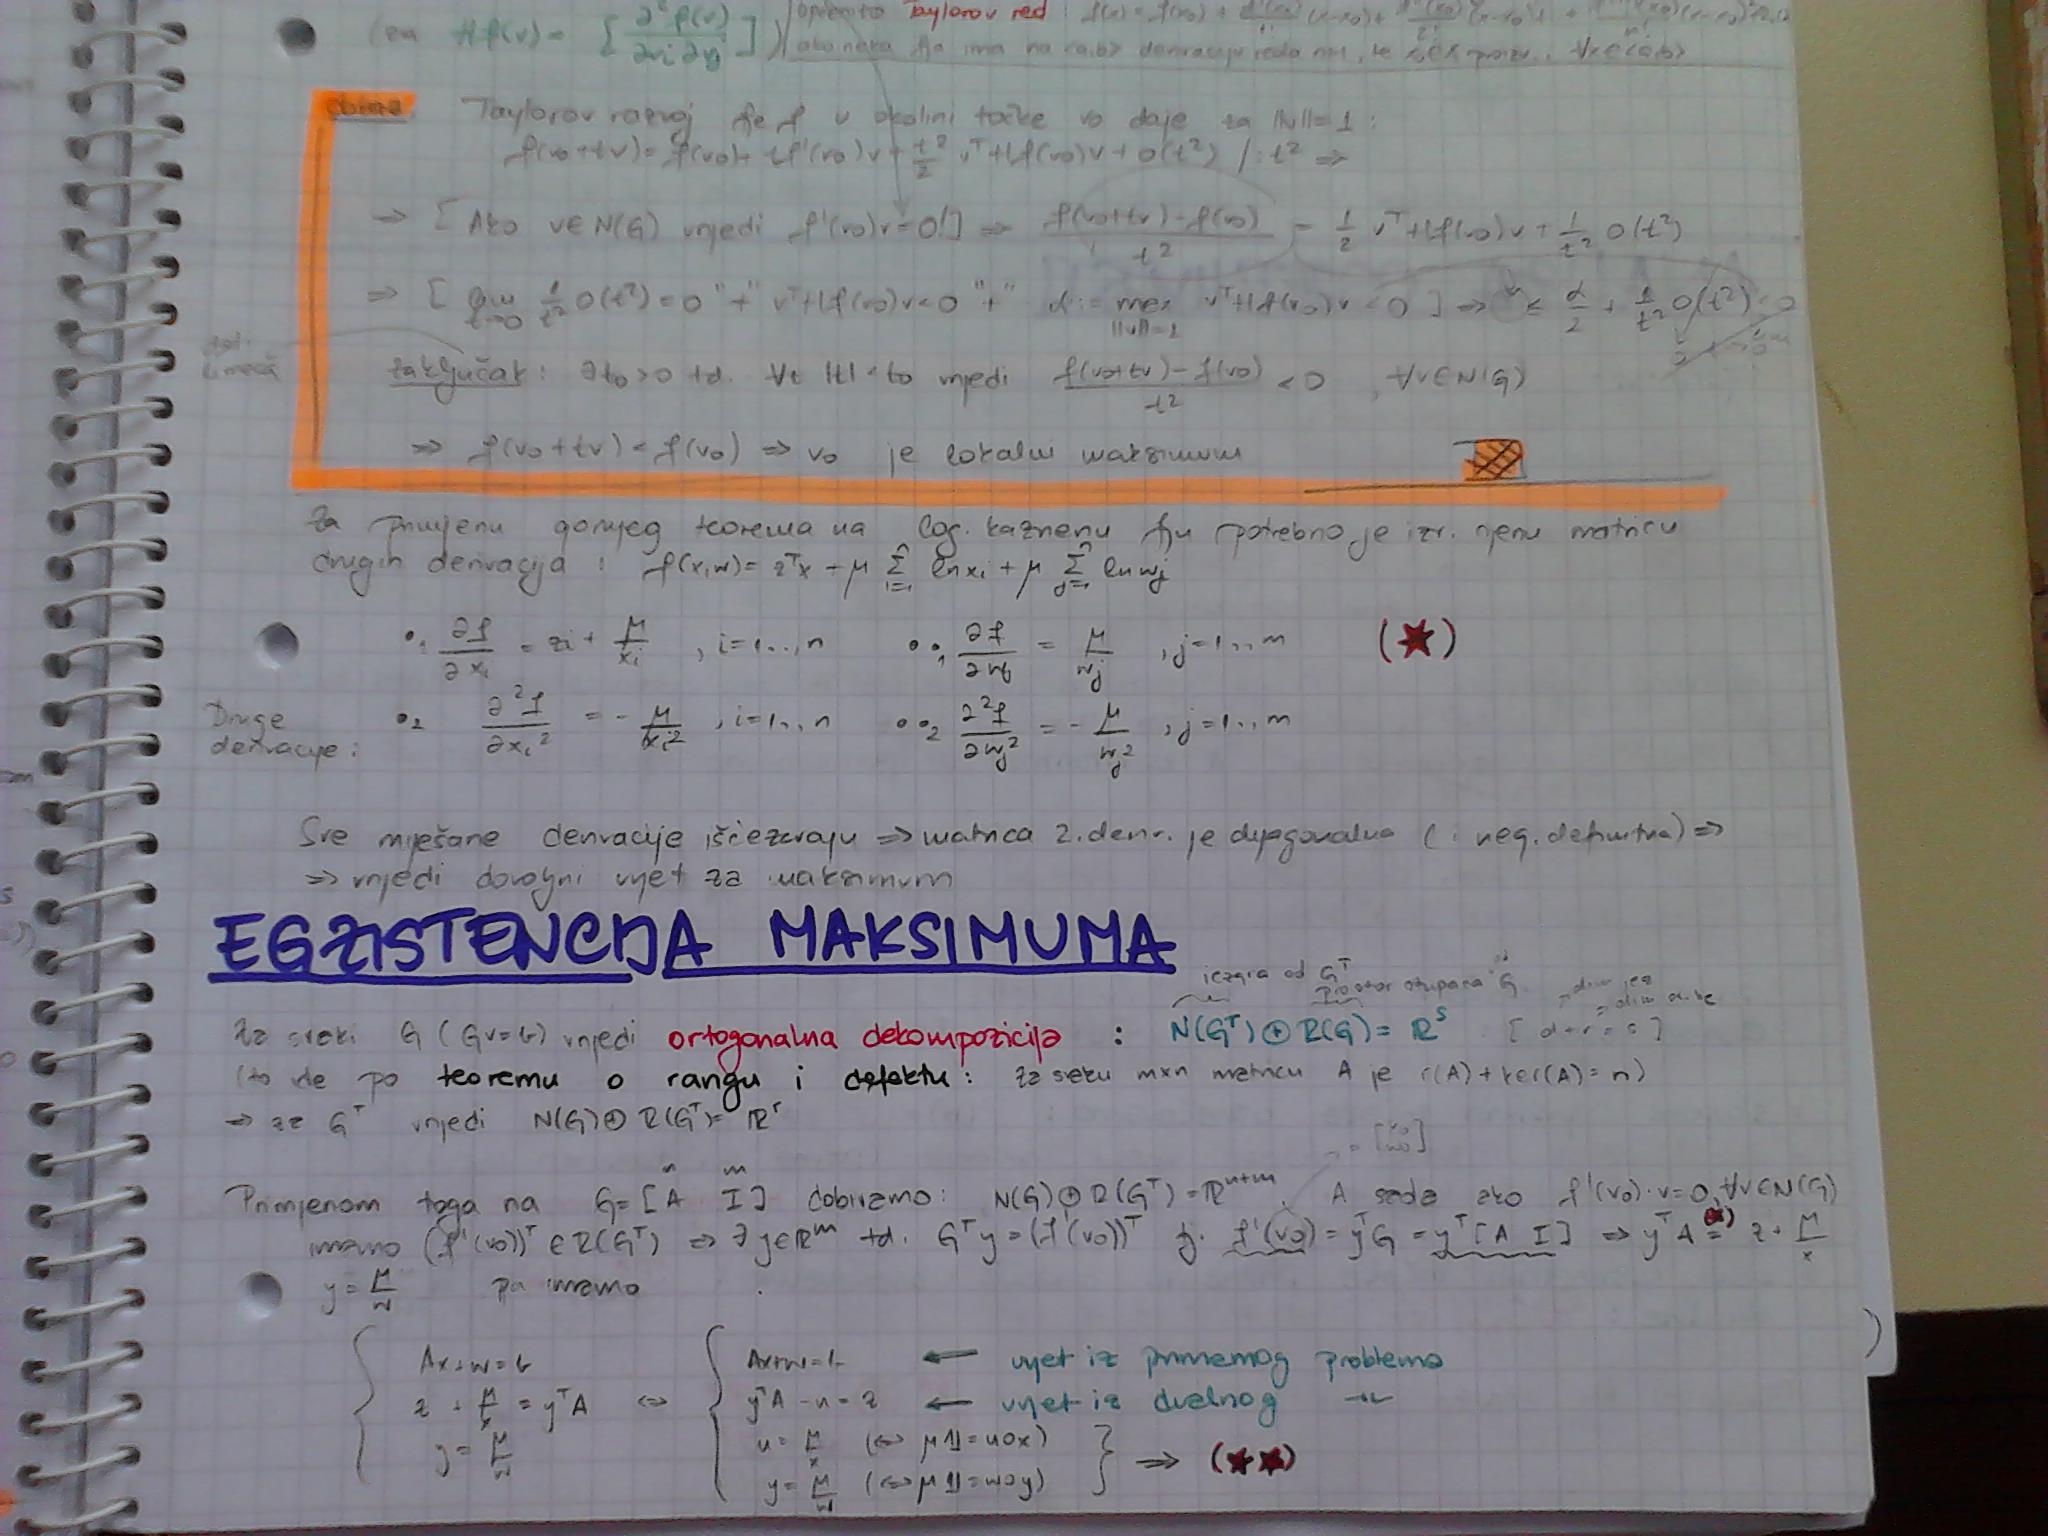 (za Hf(v) = [∂²f(v)/∂vi∂vj])
Taylorov red:
Taylorov razvoj fje f u okolini točke v₀ daje za ||v||=1:
f(v₀+tv) = f(v₀) + tf'(v₀)v + t²/2 vᵀHf(v₀)v + O(t²) /:t² ⇒
⇒ [Ako v∈N(G) vrjedi f'(v₀)v=0!] ⇒ (f(v₀+tv)-f(v₀))/t² = 1/2 vᵀHf(v₀)v + 1/t² O(t²)
⇒ [lim t→0 1/t² O(t²)=0 "+" vᵀHf(v₀)v<0 "+" α:= max ||v||=1 vᵀHf(v₀)v < 0] ⇒ ≤ α/2 + 1/t² O(t²) < 0
zaključak: ∃t₀>0 td. ∀t |t|<t₀ vrjedi (f(v₀+tv)-f(v₀))/t² < 0, ∀v∈N(G)
⇒ f(v₀+tv) < f(v₀) ⇒ v₀ je lokalni maksimum
Za primjenu gornjeg teorema na log. kaznenu fju potrebno je izr. njenu matricu
drugih derivacija: f(x,w) = zᵀx + μ Σ ln xi + μ Σ ln wj
•₁ ∂f/∂xi = zi + μ/xi, i=1..,n ••₁ ∂f/∂wj = μ/wj, j=1..m (★)
Druge derivacije: •₂ ∂²f/∂xi² = -μ/xi², i=1..,n ••₂ ∂²f/∂wj² = -μ/wj², j=1..m
Sve miješane derivacije iščezavaju ⇒ matrica 2. deriv. je dijagonalna (i neg. definitna) ⇒
⇒ vrjedi dovoljni uvjet za maksimum
EGZISTENCIJA MAKSIMUMA
jezgra od Gᵀ prostor stupaca G
Za svaki G (Gv=b) vrjedi ortogonalna dekompozicija: N(Gᵀ)⊕R(G)=ℝˢ [d+r=s]
(to ide po teoremu o rangu i defektu: za svaku m×n matricu A je r(A)+ker(A)=n)
⇒ za Gᵀ vrjedi N(G)⊕R(Gᵀ)=ℝʳ
= [x₀ w₀]
n m
Primjenom toga na G=[A I] dobivamo: N(G)⊕R(Gᵀ)=ℝⁿ⁺ᵐ. A sada ako f'(v₀)·v=0, ∀v∈N(G)
imamo (f'(v₀))ᵀ∈R(Gᵀ) ⇒ ∃y∈ℝᵐ td. Gᵀy=(f'(v₀))ᵀ tj. f'(v₀)=yᵀG=yᵀ[A I] ⇒ yᵀA (★)= z+μ/x
y=μ/w pa imamo
Ax+w=b Ax+w=b ← uvjet iz primarnog problema
z+μ/x=yᵀA ⇔ yᵀA-u=z ← uvjet iz dualnog -||-
y=μ/w u=μ/x (⇔ μ1=u∘x)
y=μ/w (⇔ μ1=w∘y) } ⇒ (★★)